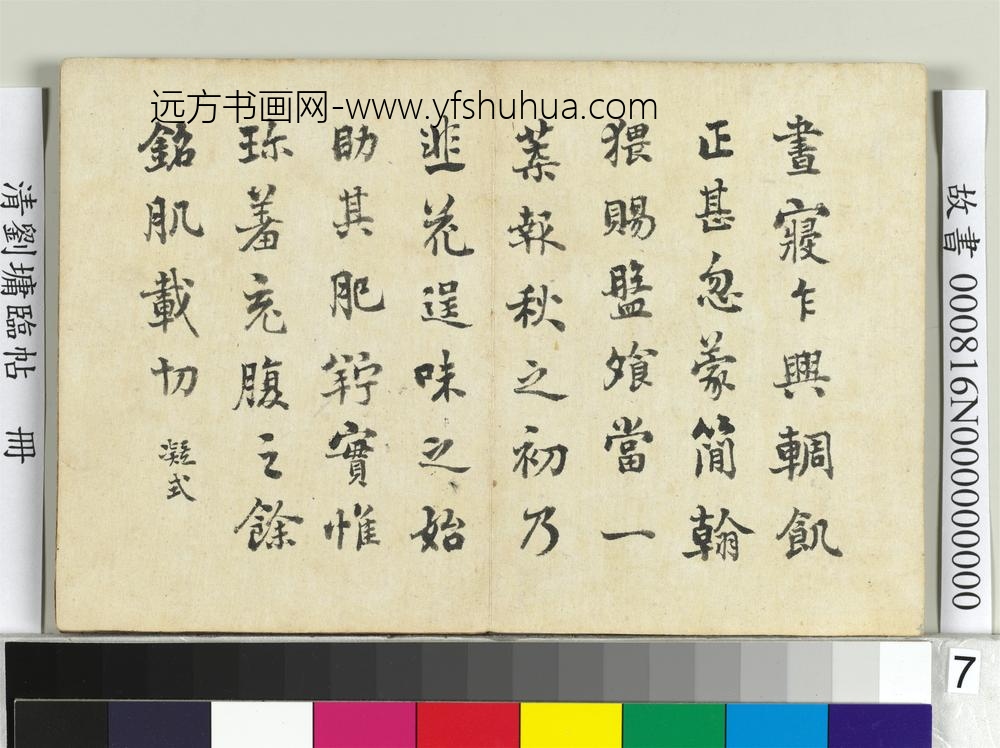 晝寢乍興輖飢
正甚忽蒙簡翰
猥賜盤飧當一
葉報秋之初乃
韭花逞味之始
助其肥羜實惟
珎羞充腹之餘
銘肌載切
凝式
远方书画网-www.yfshuhua.com
清劉墉臨帖 冊
故書 000816N000000000
7